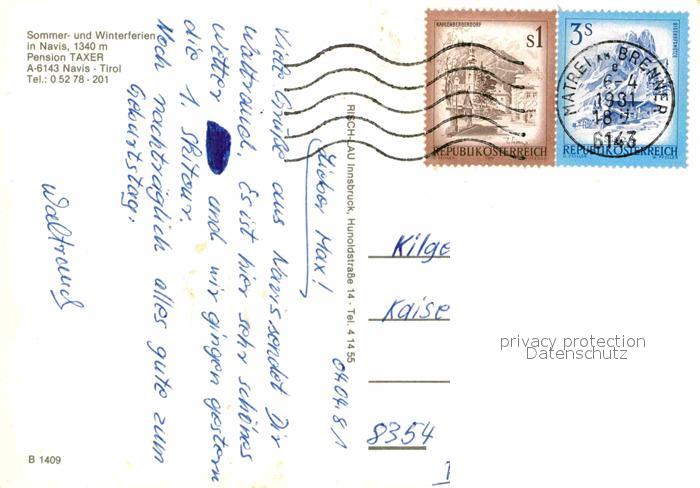 Sommer- und Winterferien
in Navis, 1340 m
Pension TAXER
A-6143 Navis - Tirol
Tel.: 0 52 78 - 201
Lieber Max!
04.04.81
Viele Grüße aus Navis sendet Dir
Waltraud. Es ist hier sehr schönes
Wetter und wir gingen gestern
die 1. Skitour.
Noch nachträglich alles gute zum
Geburtstag.
Waltraud
B 1409
RISCH-LAU Innsbruck, Hunoldstraße 14 - Tel. 4 14 55
KAHLENBERGERDORF
s1
REPUBLIK ÖSTERREICH
3s
BISCHOFSMÜTZE
REPUBLIK ÖSTERREICH
MATREI AM BRENNER
1981
6143
Kilge
Kaise
8354
privacy protection
Datenschutz